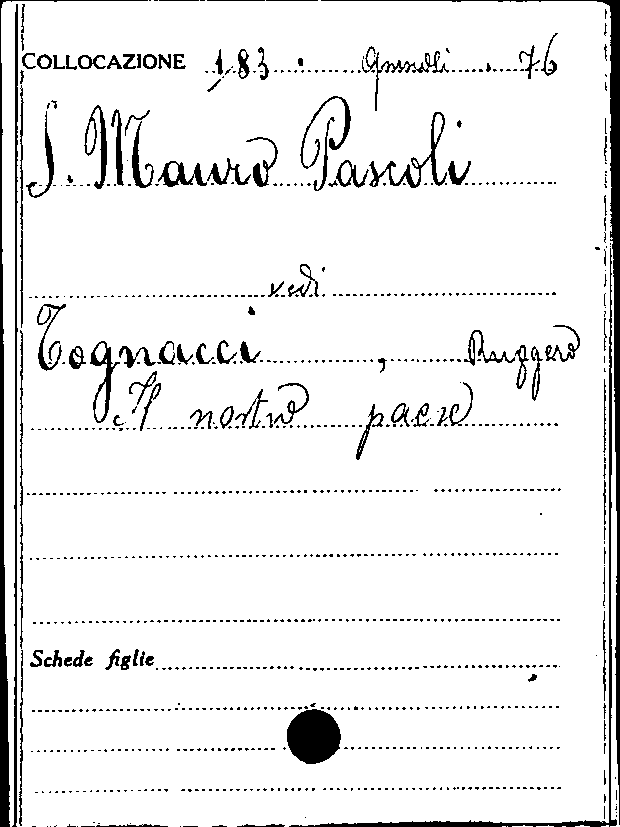 COLLOCAZIONE 183 . . 76
S. Mauro Pascoli
vedi
Tognacci , Ruggero
Il nostro paese
Schede figlie